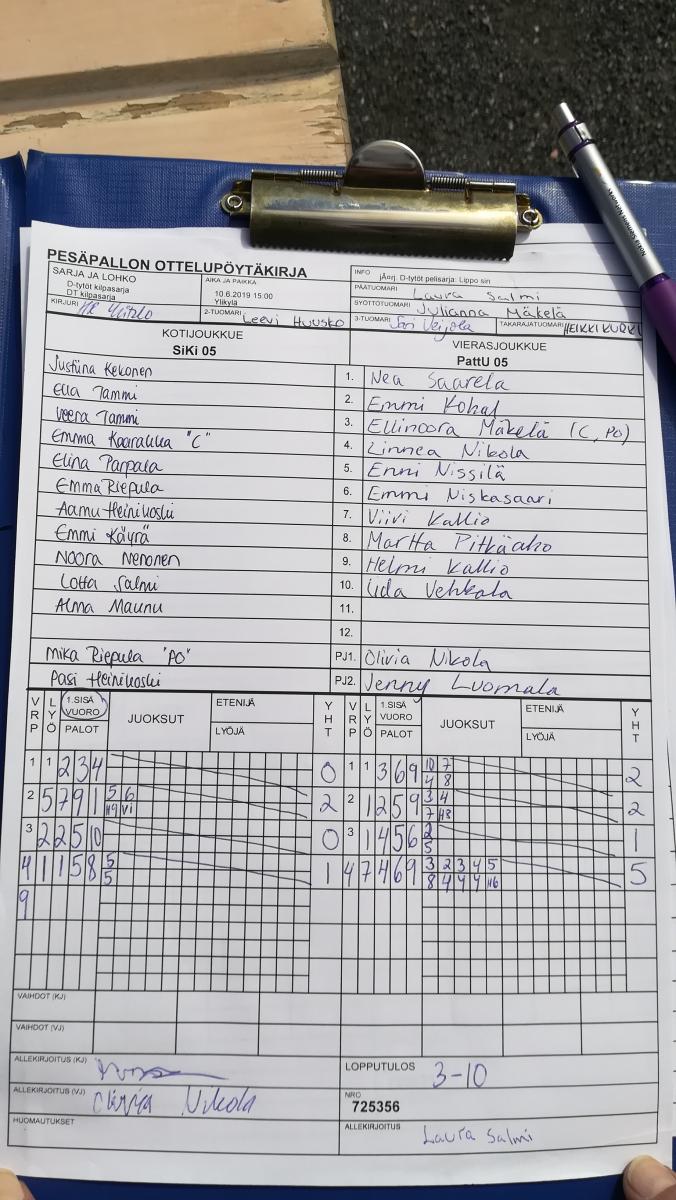 PESÄPALLON OTTELUPÖYTÄKIRJA
SARJA JA LOHKO
D-tytöt kilpasarja
DT kilpasarja
AIKA JA PAIKKA
10.6.2019 15:00
Ylikylä
INFO jÄorj. D-tytöt pelisarja: Lippo sin
PÄÄTUOMARI Laura Salmi
SYÖTTÖTUOMARI Julianna Mäkelä
KIRJURI
2-TUOMARI Leevi Huusko
3-TUOMARI Sari Veijola
TAKARAJATUOMARI HEIKKI KURKI
KOTIJOUKKUE
SiKi 05
VIERASJOUKKUE
PattU 05
Justiina Kekonen 1. Nea Saarela
Ella Tammi 2. Emmi
Veera Tammi 3. Ellinoora Mäkelä (C, PO)
Emma Kaarakka "C" 4. Linnea Nikola
Elina Parpala 5. Enni Nissilä
Emma Riepula 6. Emmi Niskasaari
Aamu Heinikoski 7. Viivi Kallio
Emmi Käyrä 8. Martta Pitkäaho
Noora Nenonen 9. Helmi Kallio
Lotta Salmi 10. Iida Vehkala
Alma Maunu 11.
12.
Mika Riepula "PO" PJ1. Olivia Nikola
Pasi Heinikoski PJ2. Jenny Luomala
VRP LYÖ 1.SISÄ VUORO PALOT JUOKSUT ETENIJÄ LYÖJÄ YHT VRP LYÖ 1.SISÄ VUORO PALOT JUOKSUT ETENIJÄ LYÖJÄ YHT
1 1 2 3 4 0 1 1 3 6 9 10 7 2
4 8
2 5 7 9 1 5 6 2 2 1 2 5 9 3 4 2
H9 Vi 7 H8
3 2 2 5 10 0 3 1 4 5 6 2 1
5
4 1 1 5 8 5 1 4 7 4 6 9 3 2 3 4 5 5
5 8 4 4 4 H6
9
VAIHDOT (KJ)
VAIHDOT (VJ)
ALLEKIRJOITUS (KJ)
LOPPUTULOS 3-10
ALLEKIRJOITUS (VJ) Olivia Nikola
NRO
725356
HUOMAUTUKSET
ALLEKIRJOITUS Laura Salmi